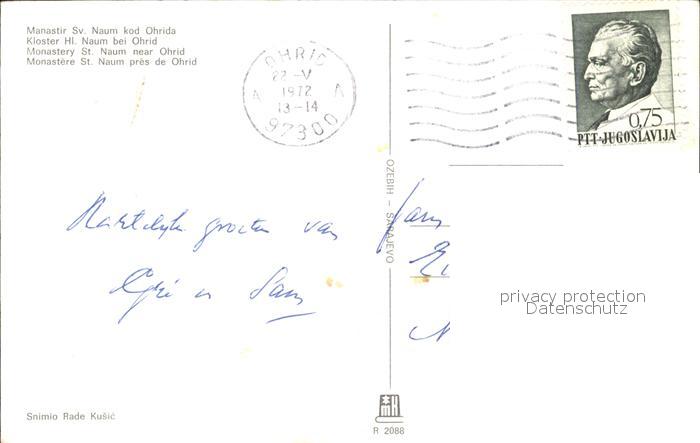 Manastir Sv. Naum kod Ohrida
Kloster Hl. Naum bei Ohrid
Monastery St. Naum near Ohrid
Monastère St. Naum près de Ohrid
OHRID
22-V
1972
13-14
A A
97300
0,75
PTT-JUGOSLAVIJA
OZEBIH – SARAJEVO
Hartelijke groeten van
en
privacy protection
Datenschutz
Snimio Rade Kušić
R 2088